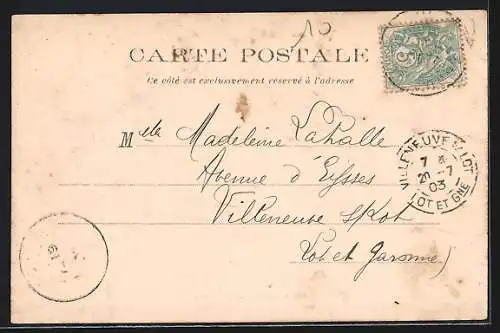 10
CARTE POSTALE
Ce côté est exclusivement réservé à l'adresse
Mlle Madeleine Lahalle
Avenue d'Eysses
Villeneuve s/Lot
Lot et Garonne)
VILLENEUVE S LOT
7
20 -7
03
LOT ET GNE
5